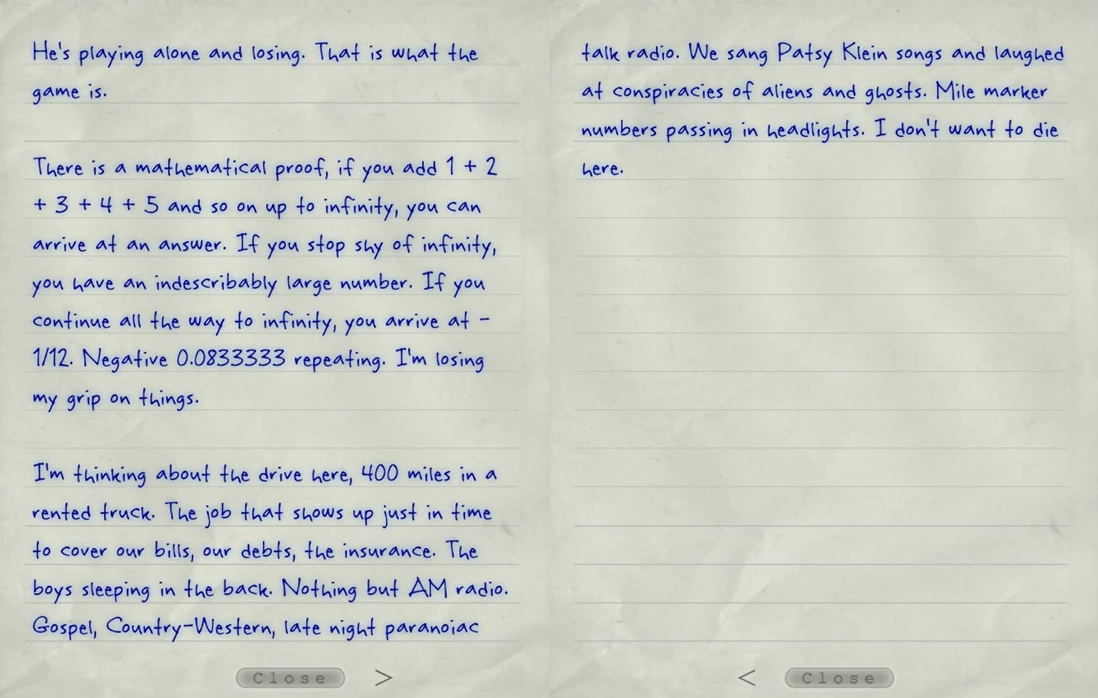 He's playing alone and losing. That is what the
game is.
There is a mathematical proof, if you add 1 + 2
+ 3 + 4 + 5 and so on up to infinity, you can
arrive at an answer. If you stop shy of infinity,
you have an indescribably large number. If you
continue all the way to infinity, you arrive at -
1/12. Negative 0.0833333 repeating. I'm losing
my grip on things.
I'm thinking about the drive here, 400 miles in a
rented truck. The job that shows up just in time
to cover our bills, our debts, the insurance. The
boys sleeping in the back. Nothing but AM radio.
Gospel, Country-Western, late night paranoiac
Close >
talk radio. We sang Patsy Klein songs and laughed
at conspiracies of aliens and ghosts. Mile marker
numbers passing in headlights. I don't want to die
here.
< Close